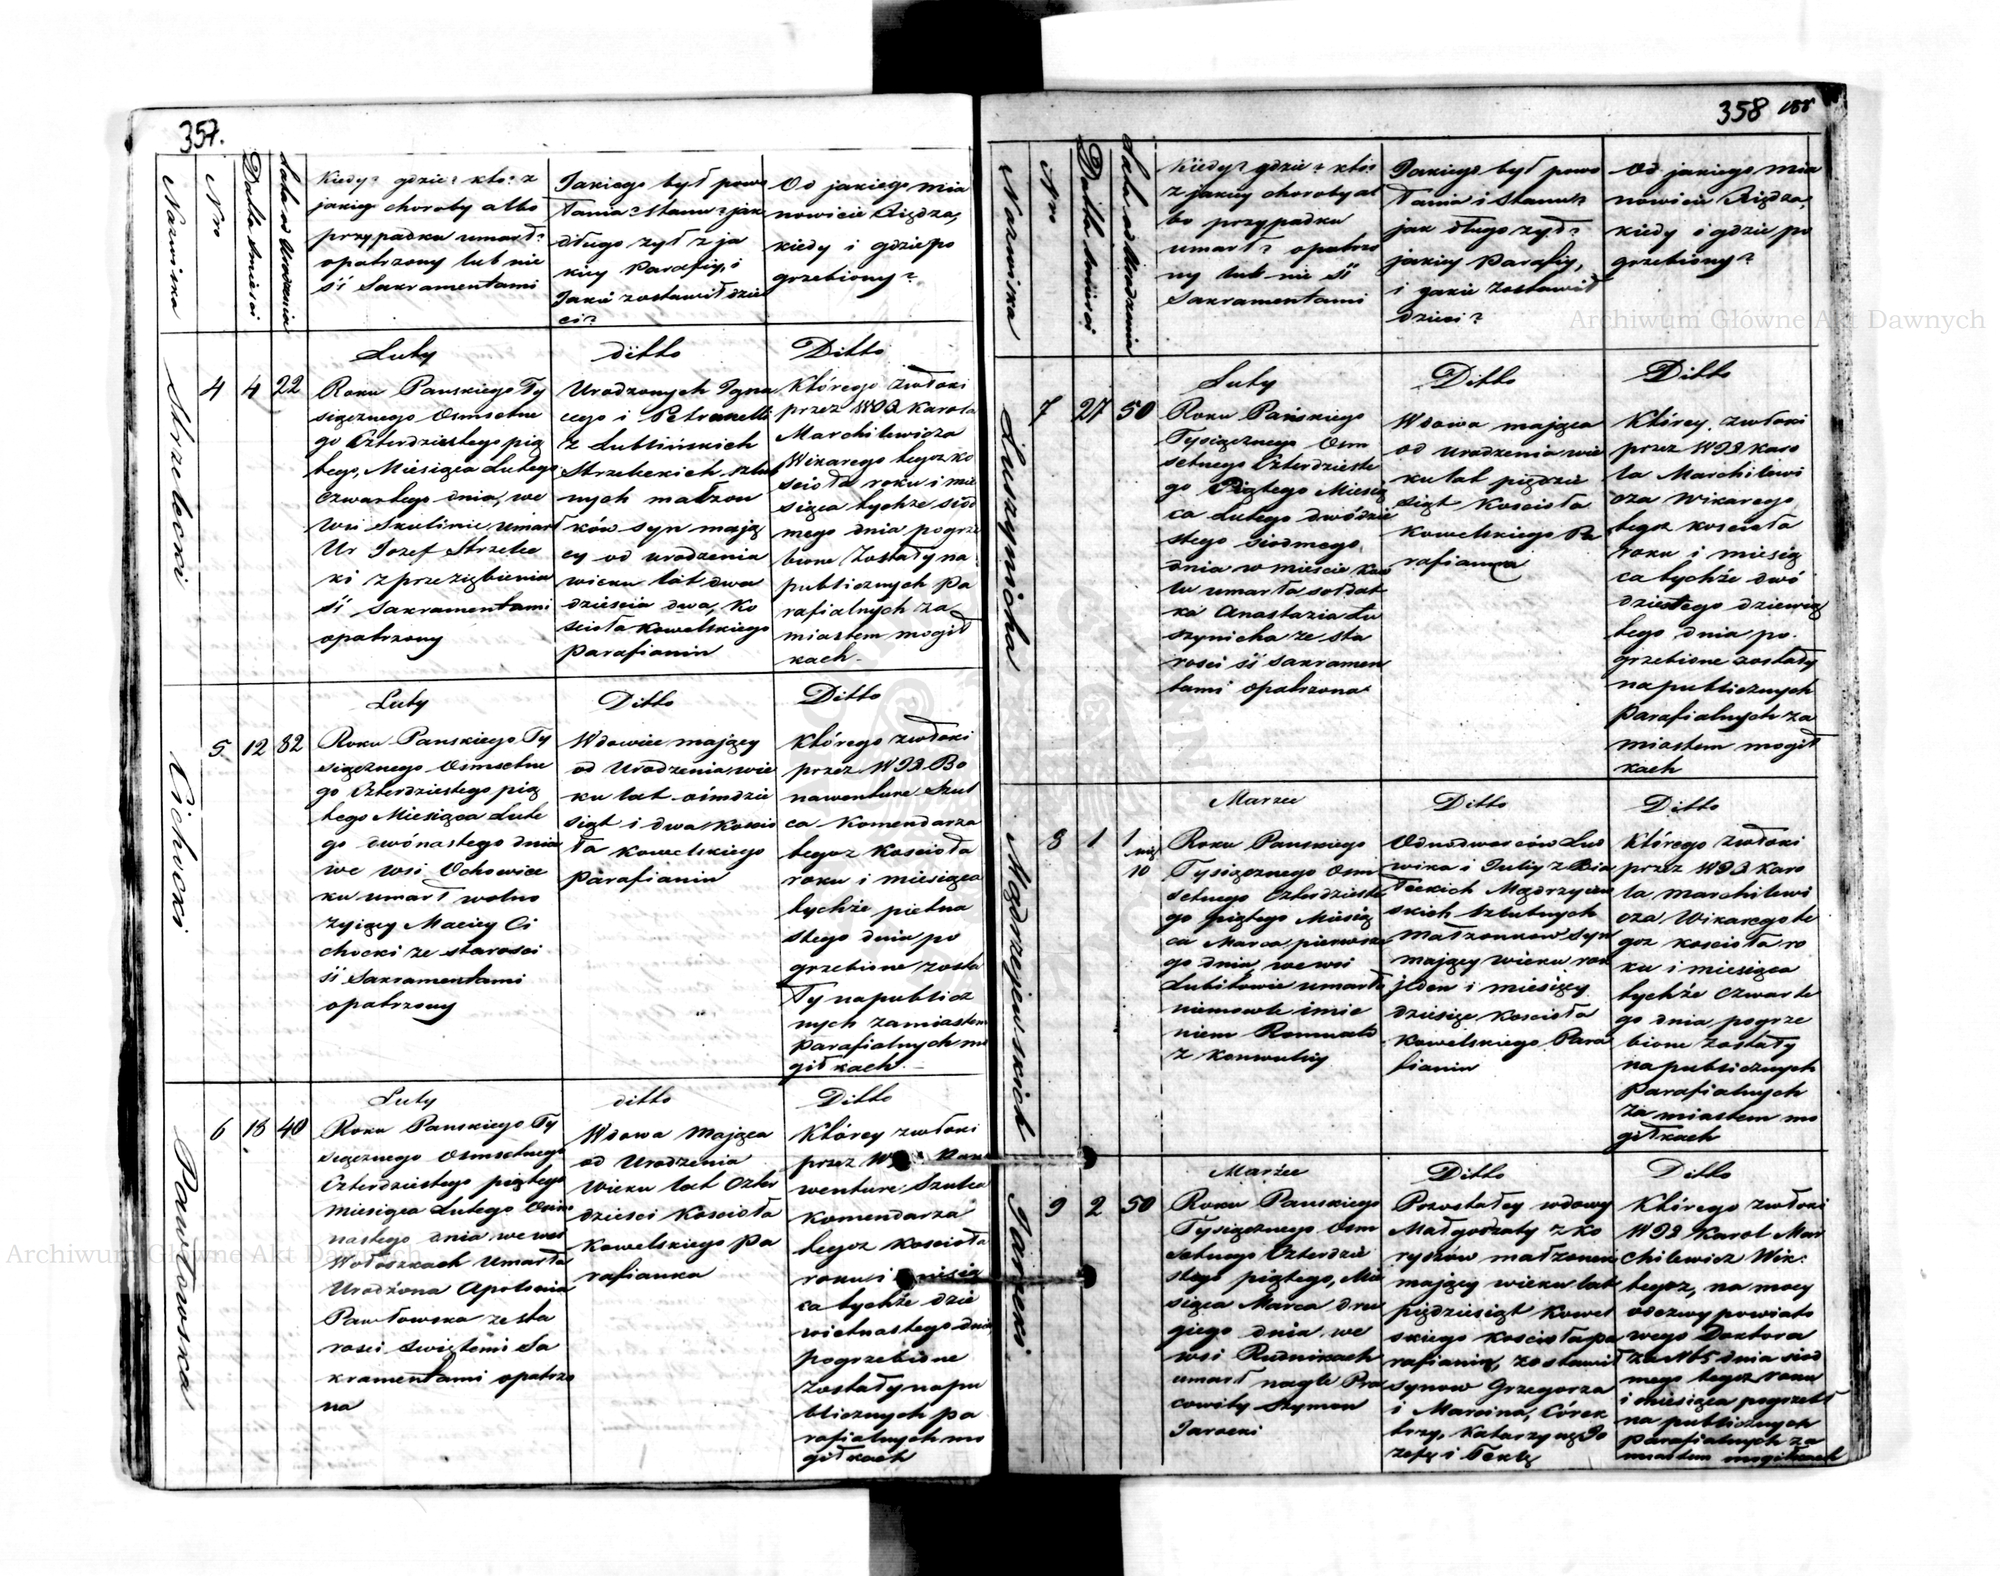 357.
Nazwiska
Nro
Datta śmierci
Lata od Urodzenia
Kiedy? gdzie? kto? z
jakiey choroby albo
przypadku umarł?
opatrzony lub nie
ŚŚ Sakramentami
Jakiego był powo
łania? Stanu? jak
długo żył z ja
kiey Parafiy, i
Jakie zostawił dzie
ci?
Od jakiego mia
nowicie Xiędza,
kiedy i gdzie po
grzebiony?
Strzelecki
4
4
22
Luty
Roku Panskiego Ty
siącznego Osmsetne
go Czterdziestego pią
tego, Miesiąca Lutego
czwartego dnia, we
wsi Skulinie umarł
Ur Jozef Strzelec
ki z przeziębienia
ŚŚ Sakramentami
opatrzony
ditto
Urodzonych Igna
cego i Petronelli
z Lublińskich
Strzeleckich szlub
nych małżon
ków syn mają
cy od urodzenia
wieku lat dwa
dzieścia dwa, Ko
scioła Kowelskiego
parafianin
Ditto
Którego zwłoki
przez WJX Karola
Marchilewicza
Wikarego tegoż ko
scioła roku i mie
siąca tychże siód
mego dnia pogrze
bione Zostały na
publicznych pa
rafialnych za
miastem mogił
kach
Cichocki
5
12
82
Luty
Roku Panskiego Ty
siącznego Osmsetne
go Czterdziestego pią
tego Miesiąca Lute
go dwónastego dnia
we wsi Ochowiec
ku umarł wolno
żyiący Maciey Ci
chocki ze starości
ŚŚ Sakramentami
opatrzony
Ditto
Wdowiec mający
od Urodzenia wie
ku lat ośmdzie
siąt i dwa Koscio
ła Kowelskiego
parafianin
Ditto
Którego zwłoki
przez WJX Bo
nawenture Szul
ca Komendarza
tegoż Koscioła
roku i miesiąca
tychże pietna
stego dnia po
grzebione zosta
ły na publicz
nych zamiastem
parafialnych mo
giłkach
Pawłowska
6
18
40
Luty
Roku Panskiego Ty
siącznego Osmsetnego
Czterdziestego piątego
miesiąca Lutego Osm
nastego dnia, we wsi
Wołoszkach Umarła
Urodzona Apolonia
Pawłowska ze sta
rosci Swiętemi Sa
kramentami opatrzo
na
ditto
Wdowa mająca
od Urodzenia
Wieku lat Czter
dzieści Koscioła
Kowelskiego pa
rafianka
Ditto
Którey zwłoki
przez
wenture Szulca
Komendarza
tegoż Koscioła
roku i miesią
ca tychże dzie
wietnastego dnia
pogrzebione
zostały na pu
blicznych pa
rafialnych mo
giłkach
358
Nazwiska
Nro
Datta śmierci
Lata od Urodzenia
Kiedy? gdzie? kto?
z jakiey choroby al
bo przypadku
umarł? opatrzo
ny lub nie ŚŚ
Sakramentami
Jakiego był powo
łania i Stanu?
jak długo żył?
jakiey Parafiy,
i jakie zostawił
dzieci?
Od jakiego mia
nowicie Xiędza,
kiedy i gdzie po
grzebiony?
Łuszynicha
7
27
50
Luty
Roku Pańskiego
Tysiącznego Osm
setnego Czterdzieste
go Piątego Miesią
ca Lutego dwódzie
stego siodmego
dnia w mieście Kow
lu umarła soldat
ka Anastazia Łu
szynicha ze sta
rości ŚŚ Sakramen
tami opatrzona
Ditto
Wdowa mająca
od urodzenia wie
ku lat pięćdzie
siąt Kościoła
Kowelskiego Pa
rafianka
Ditto
Którey zwłoki
przez WJX Karo
la Marchilewi
cza Wikarego
tegoż kościoła
roku i miesią
ca tychże dwó
dziestego dziewią
tego dnia po
grzebione zostały
na publicznych
parafialnych za
miastem mogił
kach
Mądrzejewskich
8
1
1
mie
10
Marzec
Roku Panskiego
Tysiącznego Osm
setnego Czterdzieste
go piątego Miesią
ca Marca pierwsze
go dnia, we wsi
Lubitowie umarło
niemowle imie
niem Romuald
z konwulsiy
Ditto
Odnodworców Lud
wika i Juliy z Bia
łeckich Mądrzyiew
skich szlubnych
małżonkow syn
mający wieku rok
jeden i miesięcy
dziesięc Kościoła
Kowelskiego Para
fianin
Ditto
Którego zwłoki
przez WJX Karo
la Marchilewi
cza Wikarego te
goż kościoła ro
ku i miesiąca
tychże czwarte
go dnia pogrze
bione zostały
na publicznych
parafialnych
za miastem mo
giłkach
Jarocki
9
2
50
Marzec
Roku Panskiego
Tysiącznego Osm
setnego Czterdzie
stego piątego, Mie
siąca Marca dru
giego dnia we
wsi Rudnikach
umarł nagle Pra
cowity Szymon
Jarocki
Ditto
Pozostałey wdowy
Małgorzaty z Ko
ryszów małżonek
mający wieku lat
pięćdziesiąt Kowel
skiego kościoła pa
rafianin, zostawił
synow Grzegorza
i Marcina, Córek
trzy, Katarzynę, Jo
zefę i Teklę
Ditto
Którego zwłoki
WJX Karol Mar
chilewicz Wik:
tegoż, na mocy
odezwy powiato
wego Doktora
za N 65 dnia siod
mego tegoż roku
i miesiąca pogrzebł
na publicznych
parafialnych za
miastem mogiłkach
Archiwum Główne Akt Dawnych
Archiwum Główne Akt Dawnych